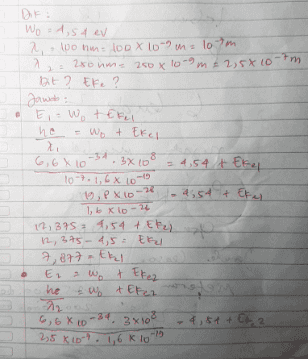 Dik :
W₀ = 4,54 eV
λ₁ = 100 nm = 100 × 10⁻⁹ m = 10⁻⁷ m
λ₂ = 250 nm = 250 × 10⁻⁹ m = 2,5 × 10⁻⁷ m
Dit ? Eke ?
Jawab :
• E₁ = W₀ + Eke1
hc/λ₁ = W₀ + Eke1
6,6 × 10⁻³⁴ . 3×10⁸ / 10⁻⁷ . 1,6 × 10⁻¹⁹ = 4,54 + Eke1
19,8 × 10⁻²⁶ / 1,6 × 10⁻²⁶ = 4,54 + Eke1
12,375 = 4,54 + Eke1
12,375 - 4,5 = Eke1
7,877 = Eke1
• E₂ = W₀ + Eke2
hc/λ₂ = W₀ + Eke2
6,6 × 10⁻³⁴ . 3×10⁸ / 2,5 × 10⁻⁷ . 1,6 × 10⁻¹⁹ = 4,54 + Eke2